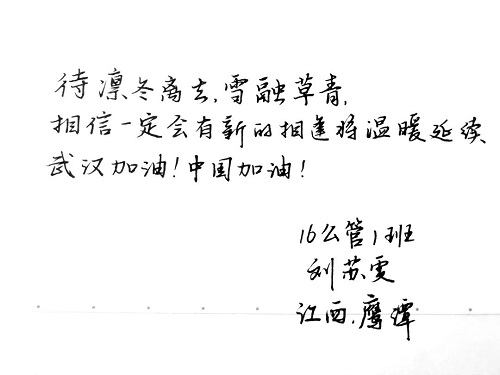 待凛冬离去,雪融草青,
相信一定会有新的相逢将温暖延续
武汉加油!中国加油!
16公管1班
刘苏雯
江西.鹰潭